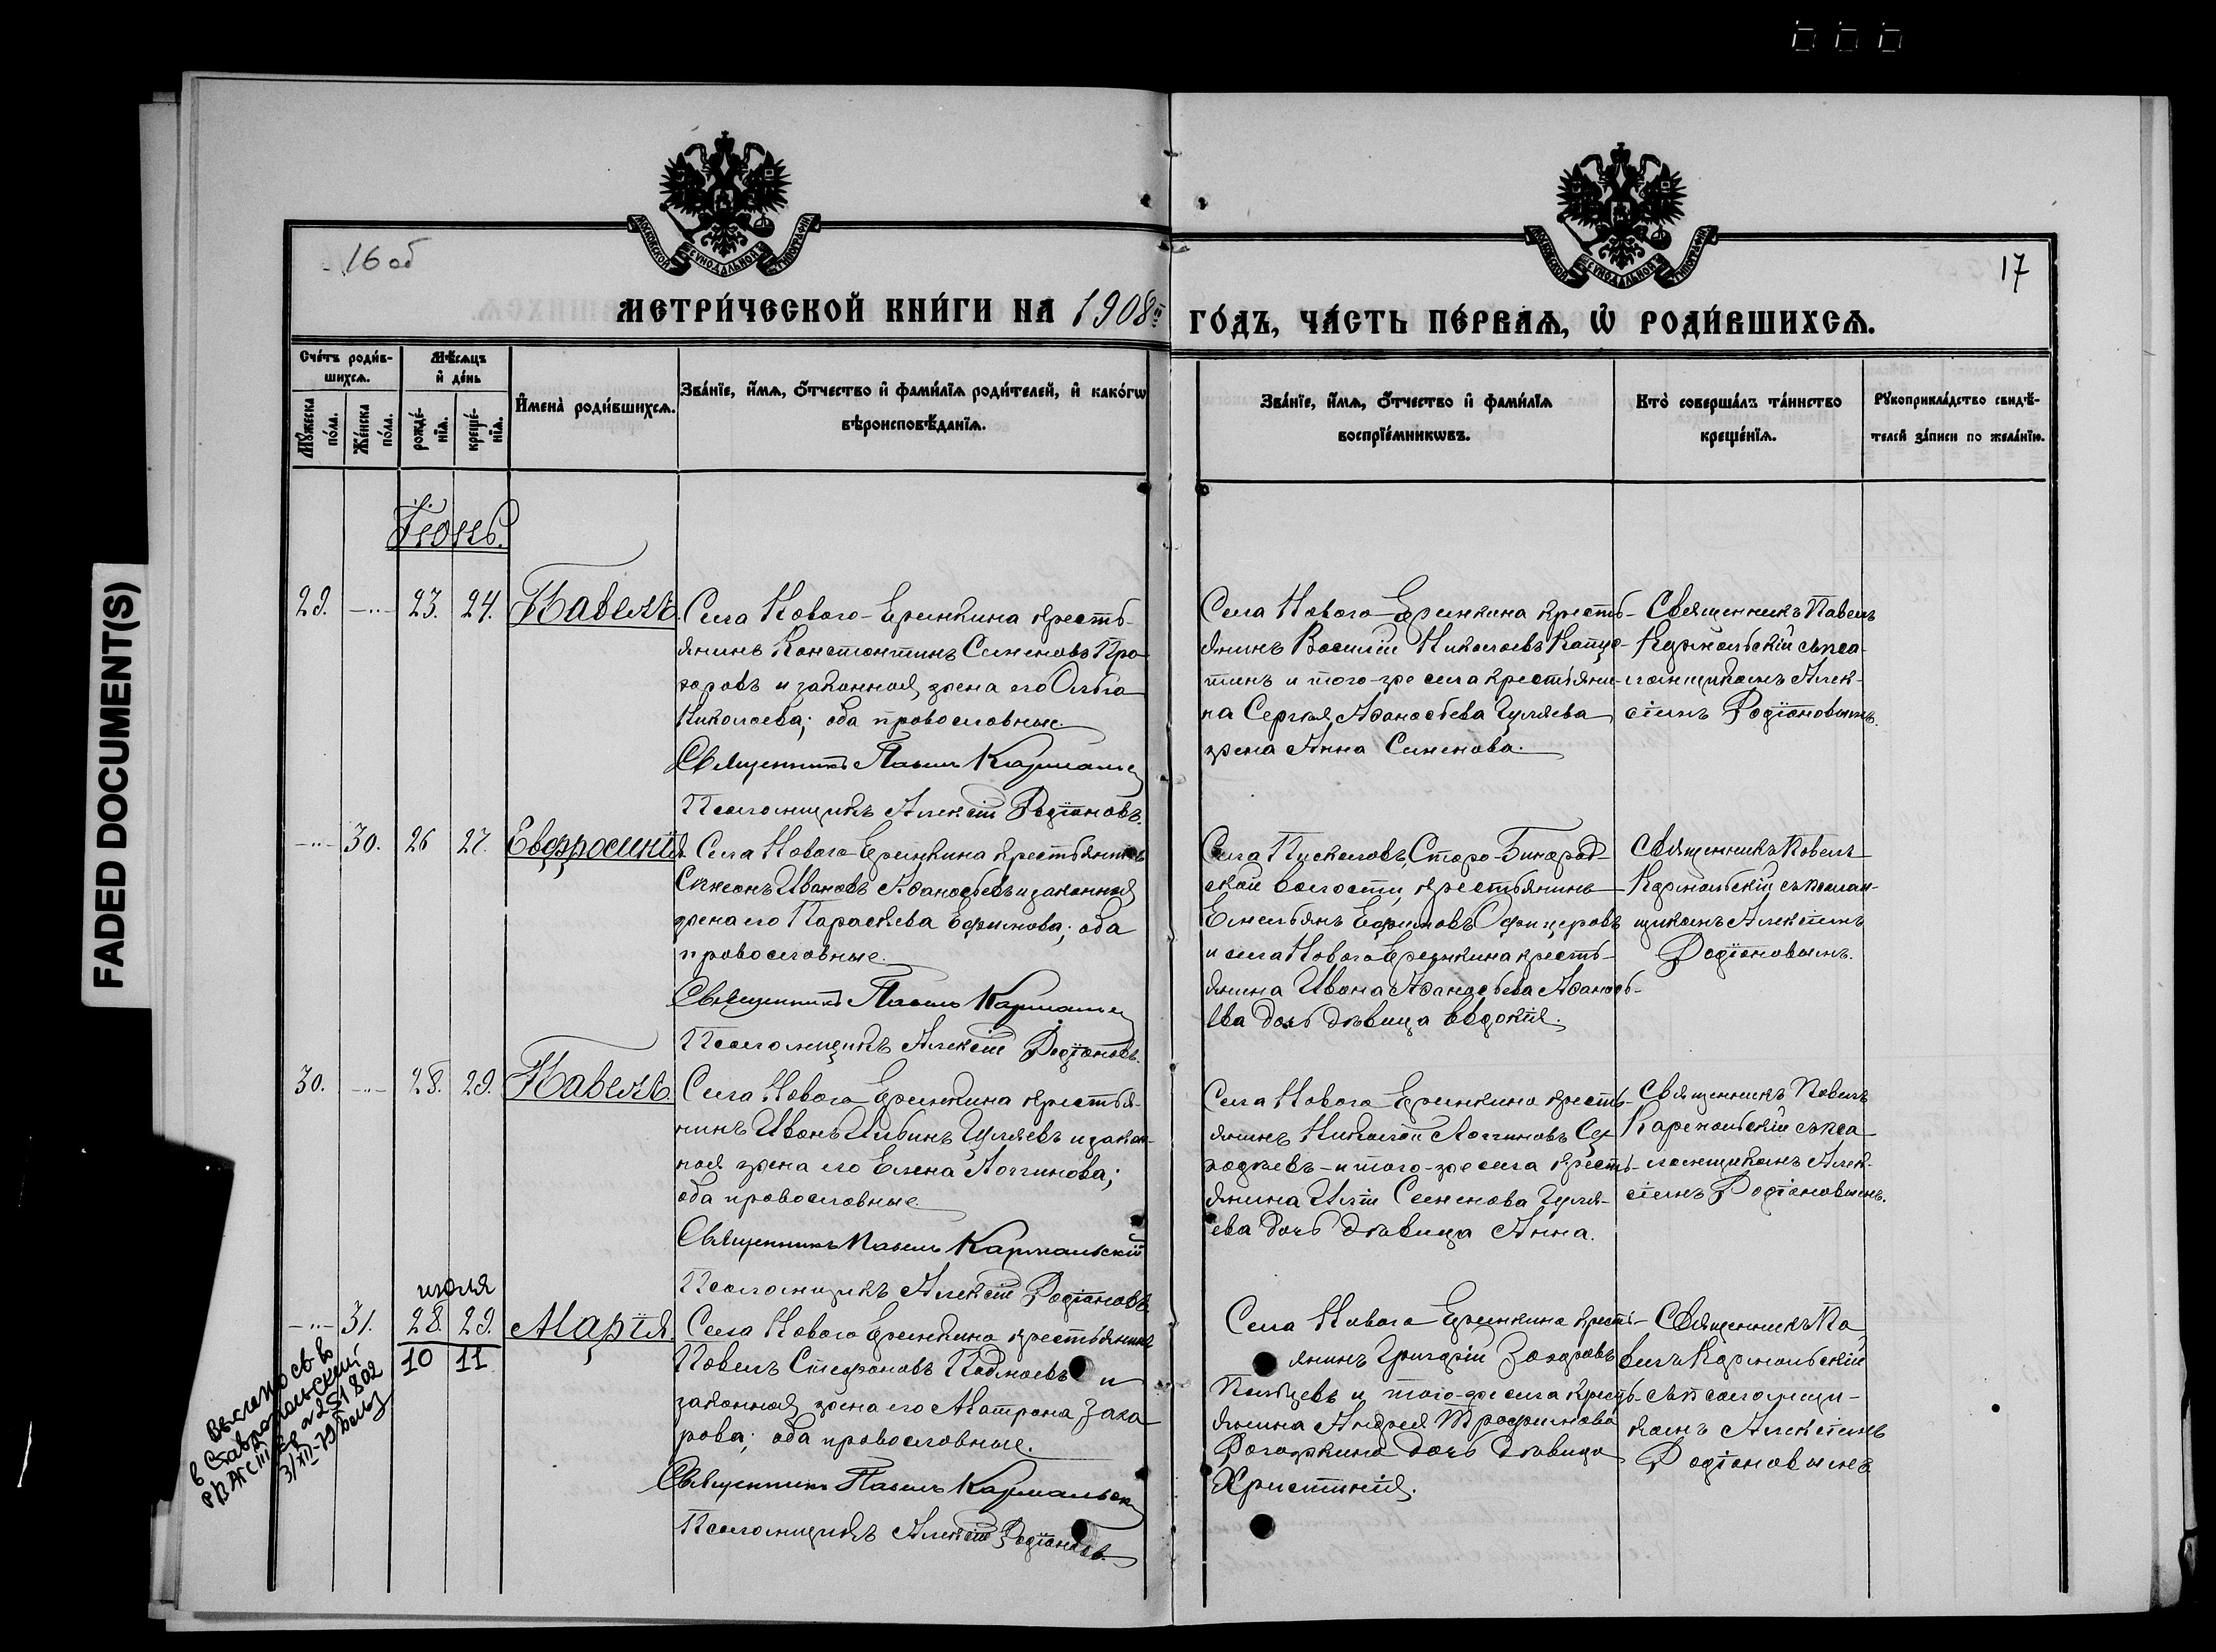 FADED DOCUMENT(S)
16 об
17
МОСКОВСКОЙ СѴНОДАЛЬНОЙ ТИПОГРАФІИ
МОСКОВСКОЙ СѴНОДАЛЬНОЙ ТИПОГРАФІИ
МЕТРИ́ЧЕСКОЙ КНИ́ГИ НА 1908й
ГО́ДЪ, ЧА́СТЬ ПЕ́РВАѦ, Ѽ РОДИ́ВШИХСѦ.
Сче́тъ роди́в-
шихсѧ.
Мꙋ́жеска
по́ла.
Же́нска
по́ла.
Мѣ́сѧцъ
и҆ де́нь
рожде́-
нїѧ.
креще́-
нїѧ.
И҆мена̀ роди́вшихсѧ.
Зва́нїе, и҆́мѧ, ѻ҆́тчество и҆ фами́лїѧ роди́телей, и҆ како́гѡ
вѣроисповѣ́данїѧ.
Зва́нїе, и҆́мѧ, ѻ҆́тчество и҆ фами́лїѧ
воспрїе́мникѡвъ.
Кто̀ соверша́лъ та́инство
креще́нїѧ.
Рꙋкоприкла́дство свидѣ́-
телей за́писи по жела́нїю.
Іюнь.
29. -"- 23. 24. Павелъ.
Села Нового-Еремкина кресть-
янинъ Константинъ Семеновъ Про-
хоровъ и законная жена его Ольга
Николаева; оба православные.
Священникъ Павелъ
Псаломщикъ Алексій Родіоновъ.
Села Нового Еремкина кресть-
янинъ Василій Николаевъ
тинъ и того-же села крестьяни-
на Сергея Афанасьева Гуляева
жена Анна Семенова.
Священникъ Павелъ
Кармальскій съ пса-
ломщикомъ Алек-
сіемъ Родіоновымъ.
-"- 30. 26 27. Евфросинія
Села Нового Еремкина крестьянинъ
Симеонъ Ивановъ Афанасьевъ и законная
жена его Параскева Ефимова; оба
православные.
Священникъ Павелъ
Псаломщикъ Алексій Родіоновъ.
Села Пискаловъ, Старо-Бинарад-
ской волости, крестьянинъ
Емельянъ Ефимовъ Офицеровъ
и села Нового Еремкина кресть-
янина Ивана Афанасьева Афанась-
ева дочь дѣвица Евдокія.
Священникъ Павелъ
Кармальскій съ псалом-
щикомъ Алексіемъ
Родіоновымъ.
30. -"- 28. 29. Павелъ.
Села Нового Еремкина крестья-
нинъ Иванъ Ильинъ Гуляевъ и закон-
ная жена его Елена Логгинова;
оба православные.
Священникъ Павелъ Кармальскій
Псаломщикъ Алексій Родіоновъ.
Села Нового Еремкина кресть-
янинъ Николай Логгиновъ Су-
ходѣевъ - и того-же села кресть-
янина Иліи Семенова Гуля-
ева дочь дѣвица Анна.
Священникъ Павелъ
Кармальскій съ пса-
ломщикомъ Алек-
сіемъ Родіоновымъ.
июля
-"- 31. 28. 29. Марія.
10 11
Села Нового Еремкина крестьянинъ
Павелъ Стефановъ и
законная жена его Матрона Заха-
рова; оба православные.
Священникъ Павелъ
Псаломщикъ Алексій Родіоновъ.
Села Нового Еремкина кресть-
янинъ Григорій Захаровъ
и того-же села кресть-
янина Андрея Трофимова
Рогожкина дочь дѣвица
Христинія.
Священникъ Па-
велъ Кармальскій
съ псаломщи-
комъ Алексіемъ
Родіоновымъ.
выслано св во
в Ставропольский